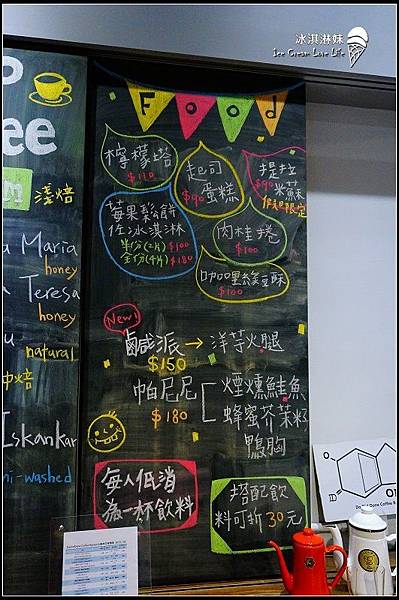 冰淇淋妹
Ice Cream Love Life
Food
ee
淺焙
Maria
honey
Teresa
honey
natural
中焙
Iskankar
washed
檸檬塔
$110
起司
蛋糕
$90
提拉
米蘇
$90
莓果鬆餅
佐冰淇淋
半份(2片) $100
全份(4片) $180
肉桂捲
$100
咖哩
$100
New!
鹹派→洋芋火腿
$150
帕尼尼
$180
煙燻鮭魚
蜂蜜芥茉籽
鴨胸
每人低消
為一杯飲料
搭配飲
料可折30元